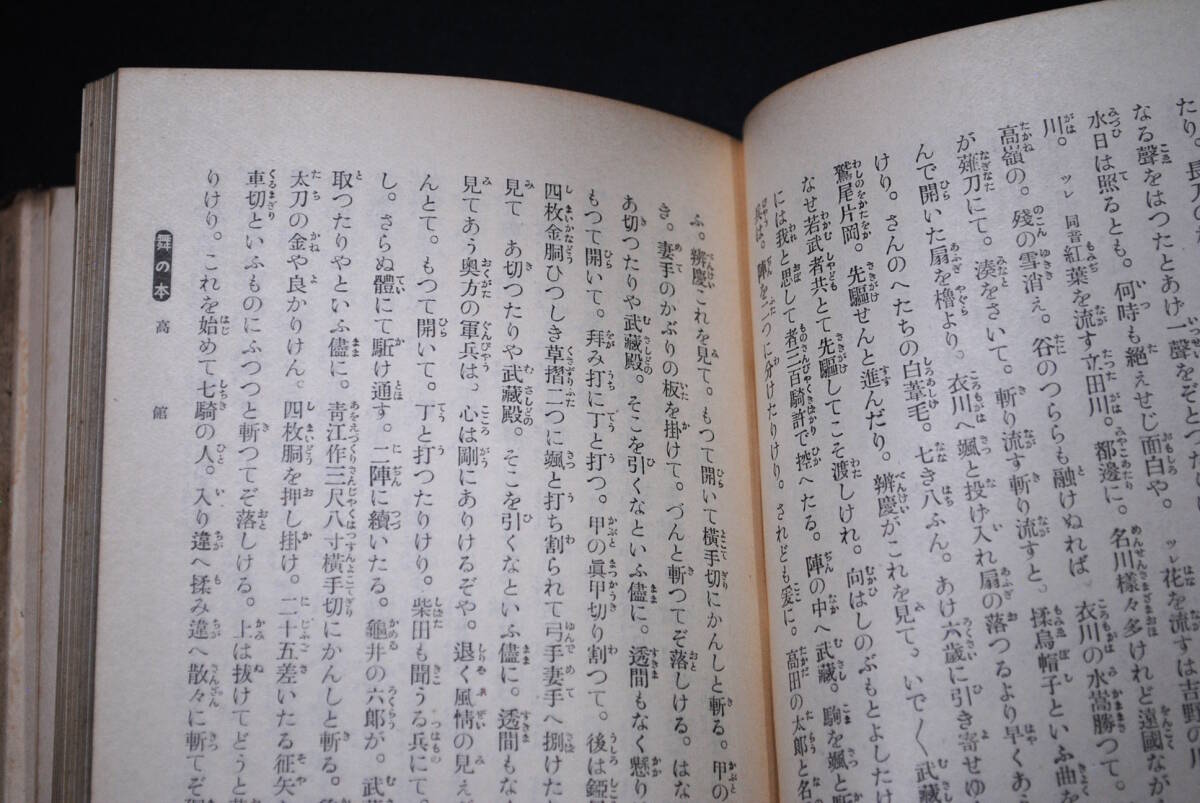 たり。長
なる聲をはつとあげ一聲をぞとつた
水日は照るとも。何時も絶えせじ面白や。 ツレ 花を流すは吉野の川
川。 ツレ 同音 紅葉を流す立田川。都邊に。名川樣々多けれど遠國なが
高嶺の。殘の雪消え。谷のつららも融けぬれば。衣川の水嵩勝つて。
が薙刀にて。湊をさいて。斬り流す斬り流すと。揉烏帽子といふ曲を
んで開いた扇を櫓より。衣川へ颯と投げ入れ扇の落つるより早くあ
けり。さんのへたちの白葦毛。七き八ふん。あけ六歳に引き寄せゆ
鷲尾片岡。先驅せんと進んだり。辨慶がこれを見て、いで〳〵武藏
なせ若武者共とて先驅してこそ渡しけれ。向はしのぶもとよしたけ
には我と思して者三百騎許で控へたる。陣の中へ武藏。駒を颯と
兵は。陣を二つに分けたりけり。されども爰に。高田の太郎と名
ふ。辨慶これを見て。もつて開いて橫手切にかんしと斬る。甲の
き。妻手のかぶりの板を掛けて。づんと斬つてぞ落しける。はな
あ切つたりや武藏殿。そこを引くなといふ儘に。透間もなく懸り
もつて開いて。拜み打に丁と打つ。甲の眞甲切り割つて。後は錏
四枚金胴ひつしき草摺二つに颯と打ち割られて弓手妻手へ捌けた
見て あ切つたりや武藏殿。そこを引くなといふ儘に。透間もな
見てあう奧方の軍兵は、心は剛にありけるぞや。退く風情の見え
んとて。もつて開いて。丁と打つたりけり。柴田も聞うる兵にて。
し。さらぬ體にて駈け通す。二陣に續いたる。龜井の六郎が。武
取つたりやといふ儘に。靑江作三尺八寸橫手切にかんしと斬る。
太刀の金や良かりけん。四枚胴を押し掛け。二十五差いたる征矢
車切といふものにふつつと斬つてぞ落しける。上は拔けてどうと
りけり。これを始めて七騎の人。入り違へ揉み違へ散々に斬てぞ
舞の本 高館